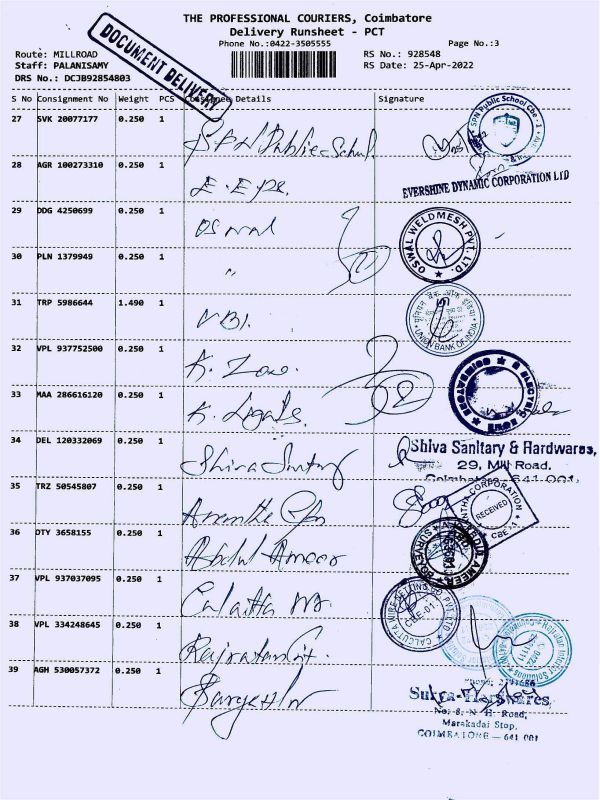 THE PROFESSIONAL COURIERS, Coimbatore
Delivery Runsheet - PCT
Phone No.:0422-3505555
Page No.:3
Route: MILLROAD
RS No.: 928548
Staff: PALANISAMY
RS Date: 25-Apr-2022
DRS No.: DCJB92854803
DOCUMENT DELIVERY
S No Consignment No Weight PCS Details Signature
27 SVK 20077177 0.250 1 S.P.N Public School.
SPN Public School
28 AGR 100273310 0.250 1
EVERSHINE DYNAMIC CORPORATION LTD
29 DDG 4250699 0.250 1 Oswal
OSWAL WELDMESH PVT. LTD.
30 PLN 1379949 0.250 1 "
31 TRP 5986644 1.490 1 UBI.
यूनियन बैंक ऑफ इंडिया
UNION BANK OF INDIA
32 VPL 937752500 0.250 1 K. Zone.
33 MAA 286616120 0.250 1 K.
34 DEL 120332069 0.250 1 Shiva Sanitary
Shiva Sanitary & Hardwares,
29, Mill Road.
Coimbatore - 641 001.
35 TRZ 50545807 0.250 1
CORPORATION
RECEIVED
CBE-1
36 OTY 3658155 0.250 1 Abdul Ameer
37 VPL 937037095 0.250 1 Calcutta
CBE-01
38 VPL 334248645 0.250 1
39 AGH 530057372 0.250 1
No. 8, N. H. Road,
Marakadai Stop,
COIMBATORE - 641 001